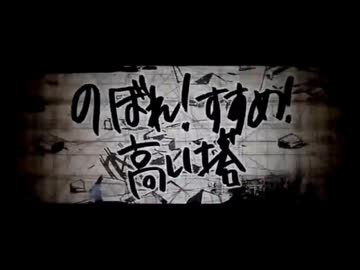 のぼれ!すすめ!
高い塔